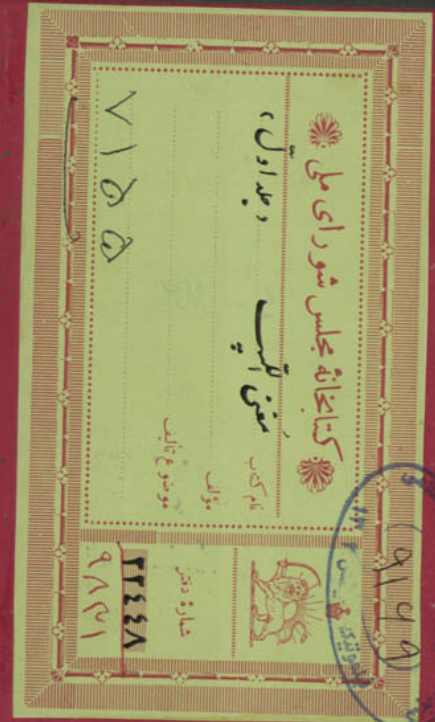 کتابخانهٔ مجلس شورای ملی
نام کتاب مغنی اللبیب «جلد اول»
مؤلف
موضوع تألیف
شمارهٔ دفتر
۲۲۴۴۸
۹۸۳۱
۷۱۵۵
۹۱۴۹